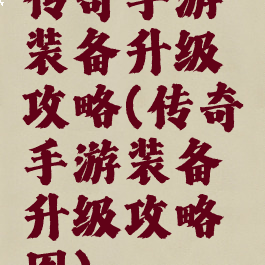 传奇手游
装备升级
攻略(传奇
手游装备
升级攻略
图)